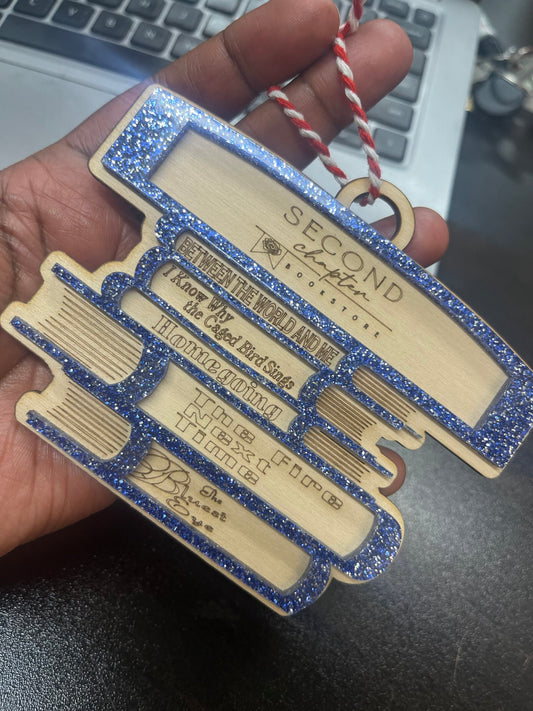 SECOND
chapter
BOOKSTORE
BETWEEN THE WORLD AND ME
I Know Why
the Caged Bird Sings
Homegoing
The Fire
Next
Time
The
Bluest
Eye